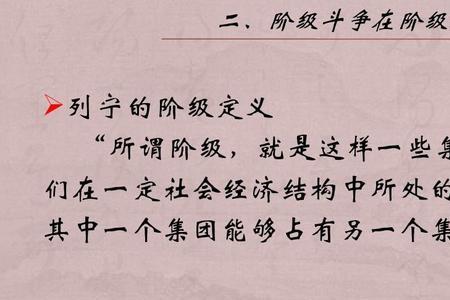 二、阶级斗争在阶级
列宁的阶级定义
“所谓阶级，就是这样一些集
们在一定社会经济结构中所处的
其中一个集团能够占有另一个集